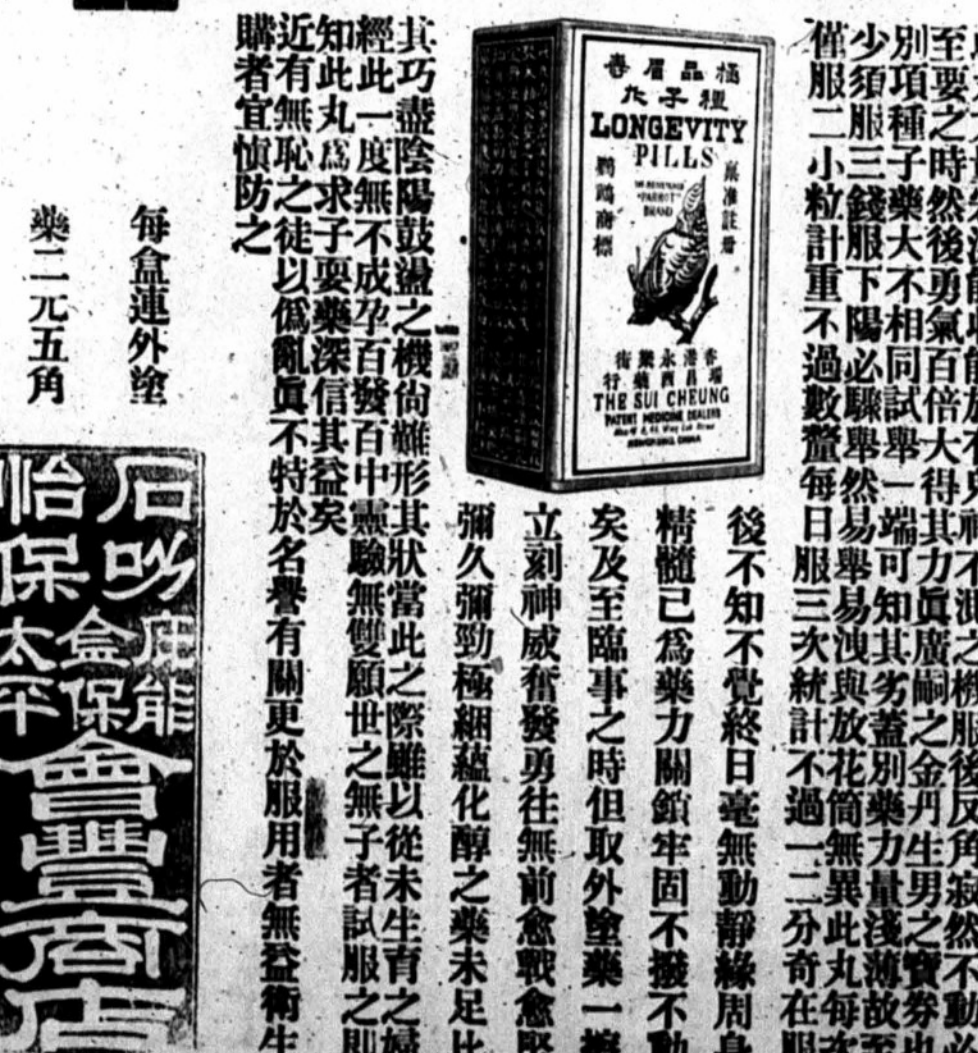 神不洩之機服後反角寂然不動必
至要之時然後勇氣百倍大得其力眞廣嗣之金丹生男之寶券也
別項種子藥大不相同試舉一端可知其劣蓋別藥力量淺薄故至
少須服三錢服下陽必驟舉然易舉易洩與放花筒無異此丸每次
僅服二小粒計重不過數釐每日服三次統計不過一二分奇在服
極品眉壽
種子丸
LONGEVITY
PILLS
稟准註冊
"PARROT"
BRAND
鸚鵡商標
香港永樂街
瑞昌西藥行
THE SUI CHEUNG
PATENT MEDICINE DEALERS
HONGKONG, CHINA
後不知不覺終日毫無動靜緣周身
精髓已爲藥力關鎖牢固不撥不動
矣及至臨事之時但取外塗藥一擦
立刻神威奮發勇往無前愈戰愈堅
彌久彌勁極綑蘊化醇之藥未足比
其巧盡陰陽鼓盪之機尙難形其狀當此之際雖以從未生育之婦
經此一度無不成孕百發百中靈驗無雙願世之無子者試服之則
知此丸爲求子要藥深信其益矣
近有無恥之徒以僞亂眞不特於名譽有關更於服用者無益衛生
購者宜慎防之
每盒連外塗
藥二元五角
石叻
怡保
盒保
太平
會豐商店